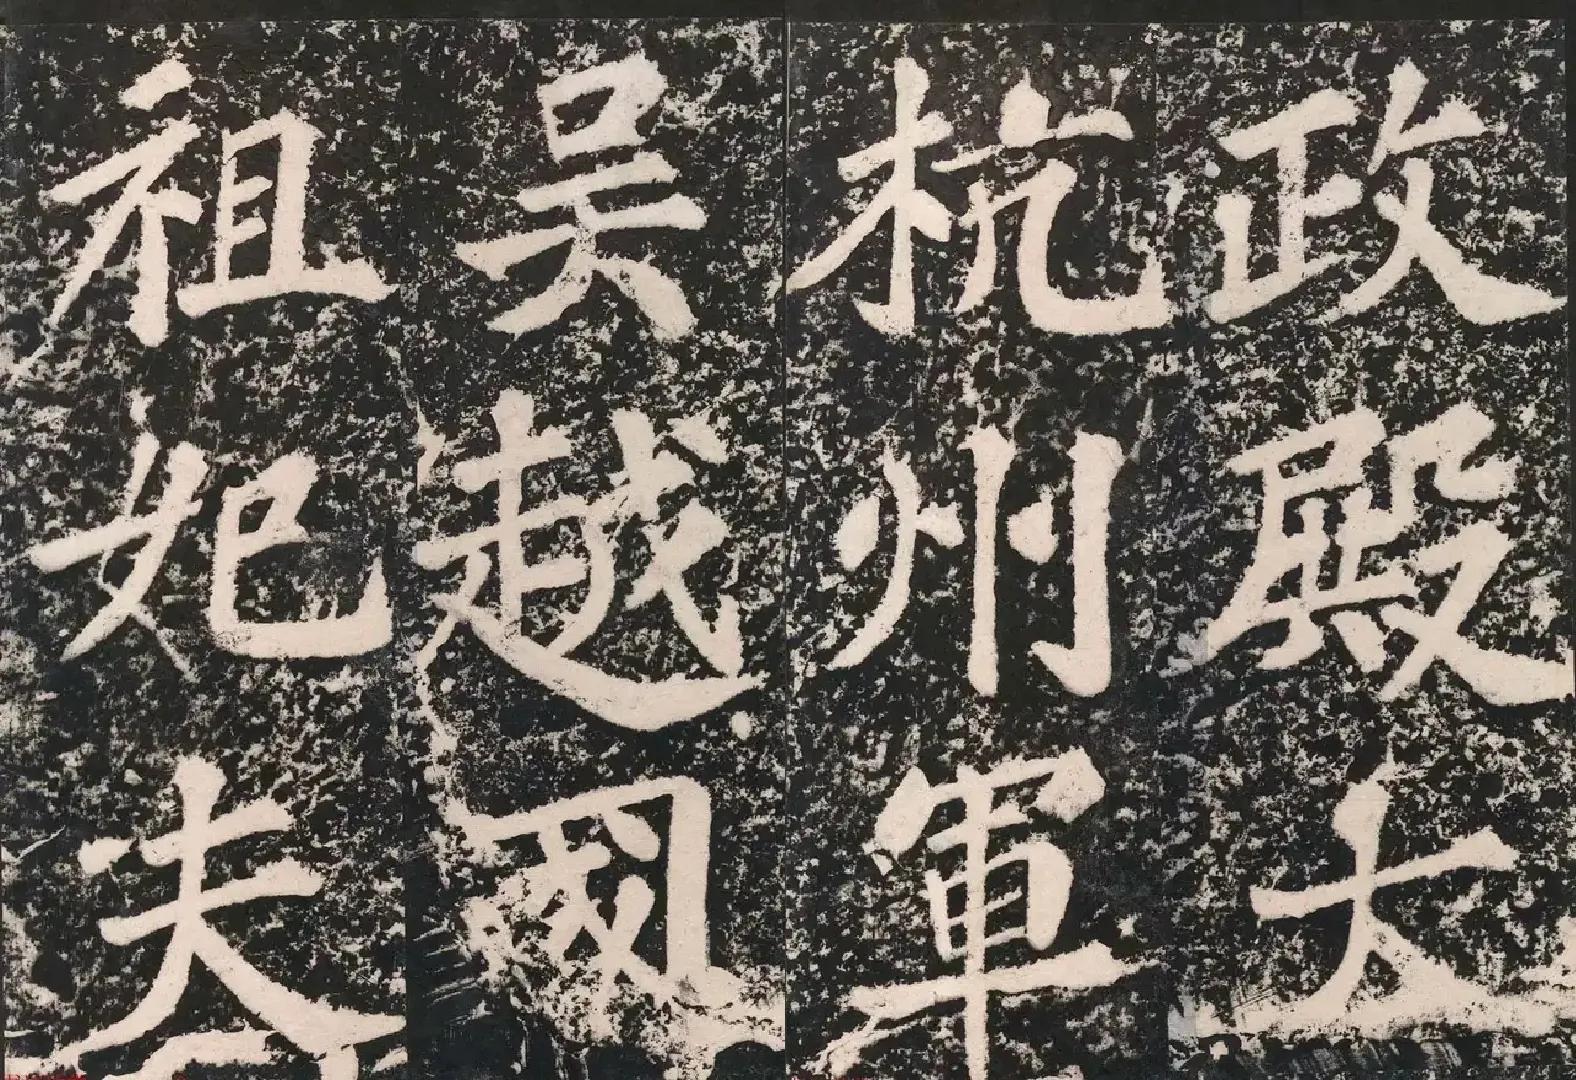 政殿大
杭州軍
吳越國
祖妃夫